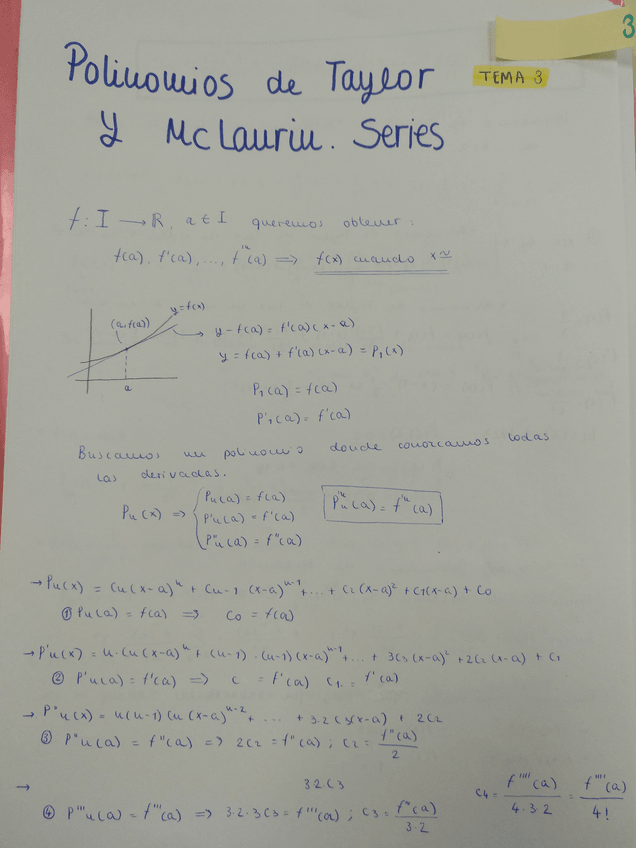 3
Polinomios de Taylor
TEMA 3
y McLaurin. Series
f: I → ℝ, a ∈ I queremos obtener:
f(a), f'(a), ..., fⁿ(a) ⇒ f(x) cuando x≈
y=f(x)
(a, f(a))
a
y - f(a) = f'(a)(x-a)
y = f(a) + f'(a)(x-a) = P₁(x)
P₁(a) = f(a)
P'₁(a) = f'(a)
Buscamos un polinomio donde conozcamos todas
las derivadas.
Pₙ(x) ⇒ { Pₙ(a) = f(a)
P'ₙ(a) = f'(a)
P''ₙ(a) = f''(a)
Pⁿₙ(a) = fⁿ(a)
→ Pₙ(x) = Cₙ(x-a)ⁿ + Cₙ₋₁ (x-a)ⁿ⁻¹ + ... + C₂(x-a)² + C₁(x-a) + C₀
① Pₙ(a) = f(a) ⇒ C₀ = f(a)
→ P'ₙ(x) = n·Cₙ(x-a)ⁿ + Cₙ₋₁·(n-1)(x-a)ⁿ⁻¹ + ... + 3C₃(x-a)² + 2C₂(x-a) + C₁
② P'ₙ(a) = f'(a) ⇒ C = f'(a) C₁ = f'(a)
→ P''ₙ(x) = n(n-1)Cₙ(x-a)ⁿ⁻² + ... + 3·2C₃(x-a) + 2C₂
③ P''ₙ(a) = f''(a) ⇒ 2C₂ = f''(a); C₂ = f''(a)/2
→ 3·2·C₃
④ P'''ₙ(a) = f'''(a) ⇒ 3·2·3C₃ = f'''(a); C₃ = f''(a)/3·2
C₄ = f''''(a)/4·3·2 = f''''(a)/4!